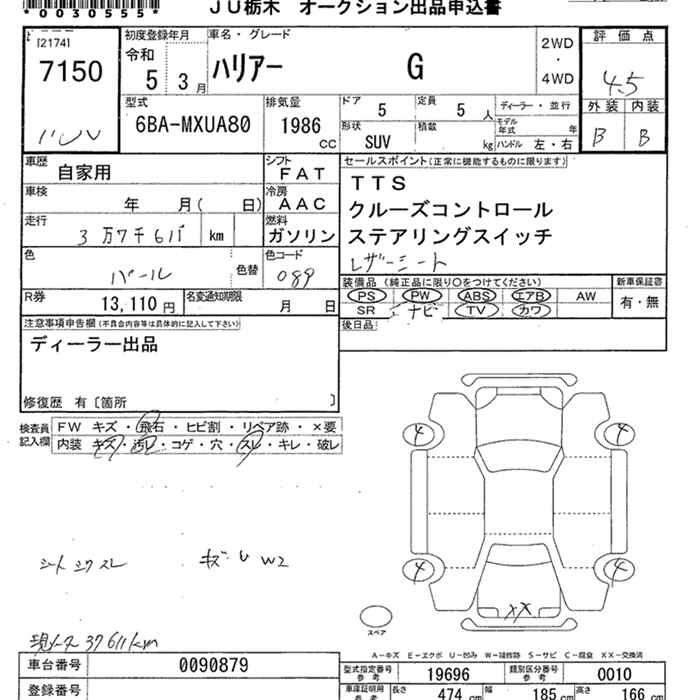 *0030555*
JU栃木 オークション出品申込書
[2174]
7150
初度登録年月
令和
5 3月
車名・グレード
ハリアー G
2WD
・
4WD
評価点
4.5
外装 内装
B B
型式
6BA-MXUA80
排気量
1986 CC
ドア
5
定員
5 人
ディーラー・並行
形状
SUV
積載
kg
モデル年式 年
ハンドル 左・右
車歴
自家用
シフト
FAT
車検
年 月( 日)
冷房
AAC
走行
3万7千6百 km
燃料
ガソリン
色
パール
色替
色コード
089
R券
13,110円
名変通知期限
月 日
セールスポイント(正常に機能するものに限ります)
TTS
クルーズコントロール
ステアリングスイッチ
レザーシート
装備品(純正品に限り○をつけてください)
PS PW ABS エアB AW
SR ナビ TV カワ
新車保証書
有・無
後日品
注意事項申告欄(不具合内容等は具体的に記入して下さい)
ディーラー出品
修復歴 有〔箇所 〕
検査員記入欄
FW キズ・飛石・ヒビ割・リペア跡・×要
内装 キズ・汚レ・コゲ・穴・スレ・キレ・破レ
4 4
4 4
XX
シート シワ スレ
キズ U W2
現メータ 37611km
スペア
A-キズ E-エクボ U-凹み W-補修跡 S-サビ C-腐食 XX-交換済
車台番号 0090879
登録番号
型式指定番号 参考 19696 類別区分番号 参考 0010
車庫証明用 参考 長さ 474 cm 幅 185 cm 高さ 166 cm